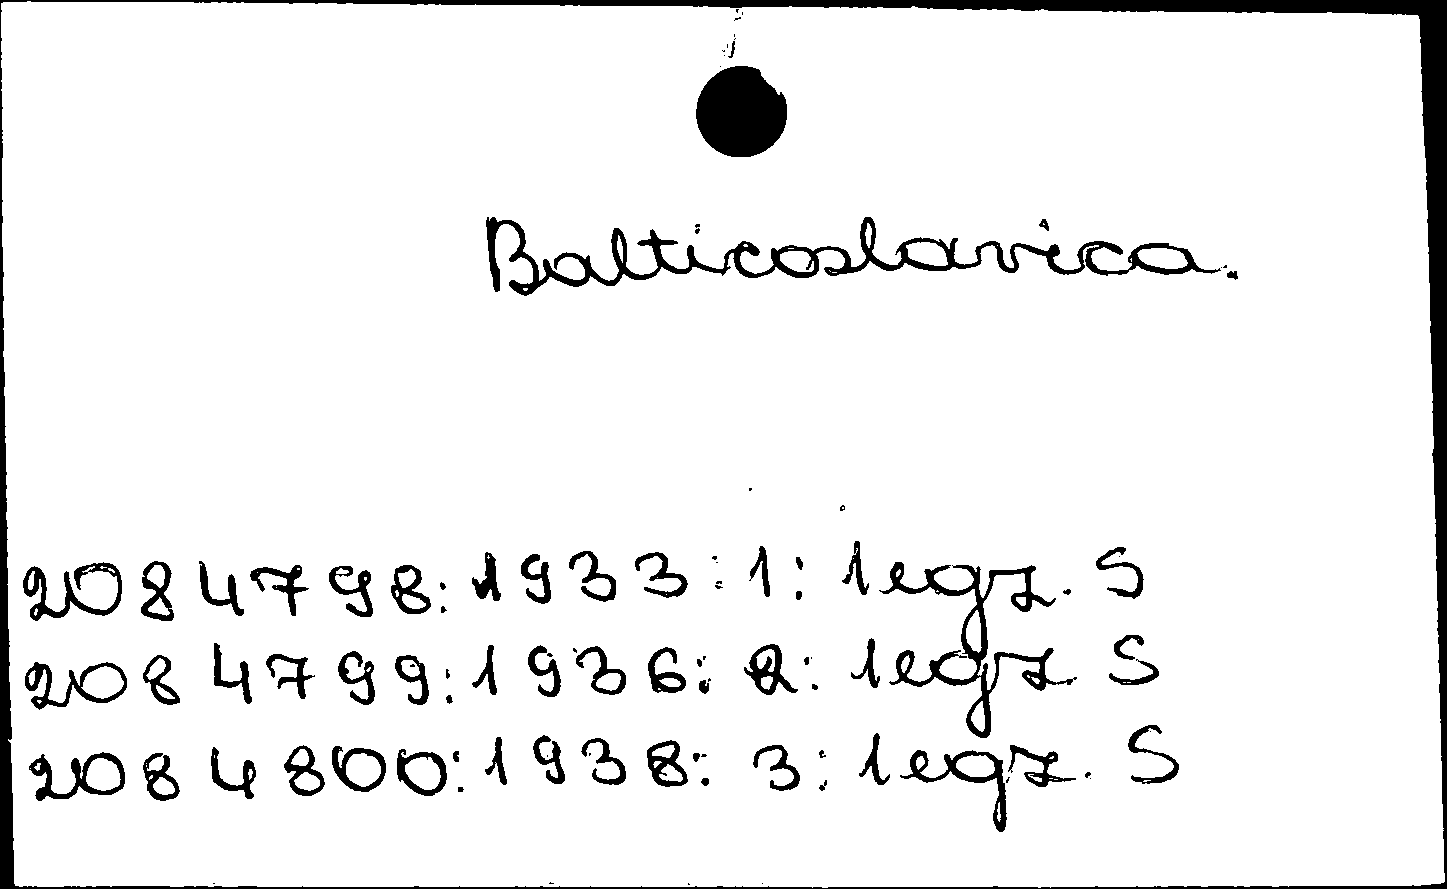 Balticoslavica.
2084798: 1933: 1: 1 egz. S
2084799: 1936: 2: 1 egz. S
2084800: 1938: 3: 1 egz. S